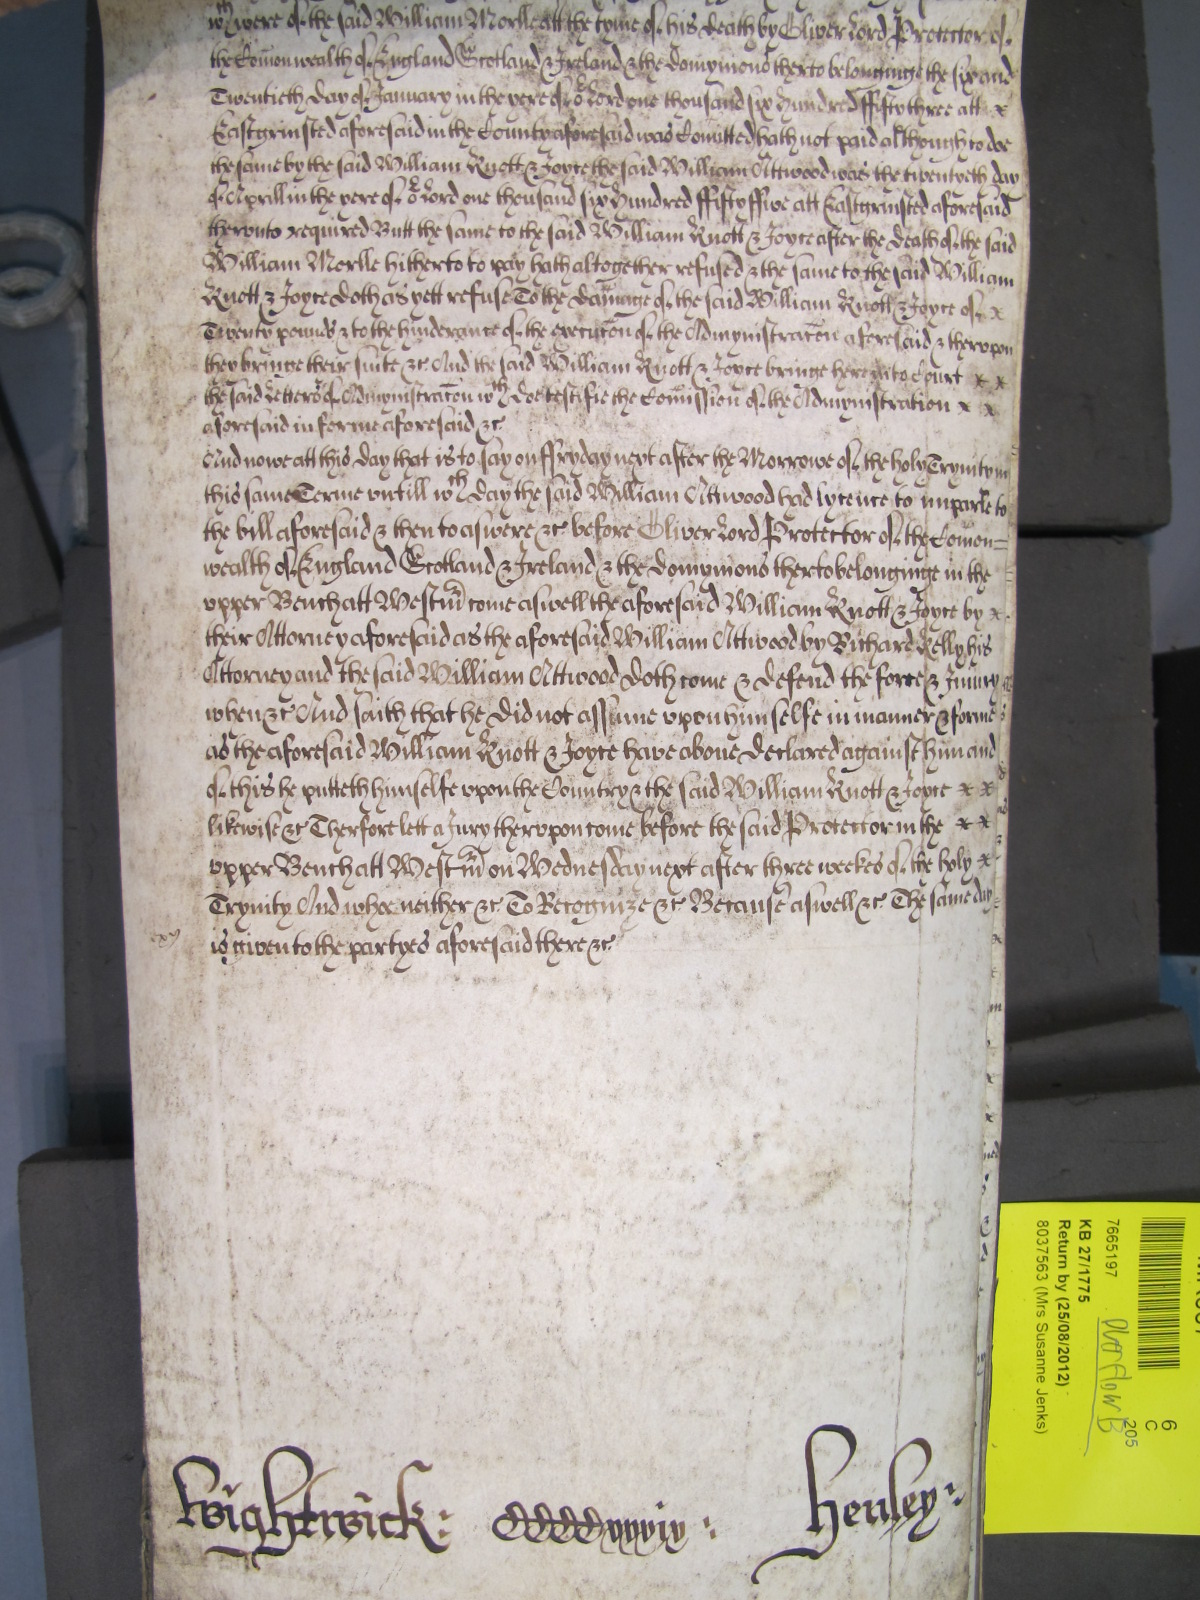 wth were of the said William Morlle att the tyme of his death by Oliver Lord Protector of
the Comonwealth of England Scotland & Ireland & the domynions therto belonginge the six and
Twentieth day of January in the yere of or Lord one thousand six hundred ffifty three att x
Eastgrinsted aforesaid in the County aforesaid was Comitted hath not paid although to doe
the same by the said William Knott & Joyce the said William Attwood was the twentyeth day
of Aprill in the yere of or Lord one thousand six hundred ffifty ffive att Eastgrinsted aforesaid
therunto required Butt the same to the said William Knott & Joyce after the death of the said
William Morlle hitherto to pay hath altogether refused & the same to the said William
Knott & Joyce doth as yett refuse To the damage of the said William Knott & Joyce of x
Twenty pounds & to the hinderance of the execucon of the Admynistracon aforesaid & therupon
they bringe their suite &c And the said William Knott & Joyce bringe here into Court x x
the said Letters of Admynistracon wth doe testifie the Comission of the Admynistration x x
aforesaid in forme aforesaid &c
And nowe att this day that is to say on ffryday next after the Morrowe of the holy Trynity in
this same Terme untill wth day the said William Attwood had lycence to imparle to
the bill aforesaid & then to aswere &c before Oliver Lord Protector of the Comon=
wealth of England Scotland & Ireland & the domynions therto belonginge in the
upper Bench att Westm come aswell the aforesaid William Knott & Joyce by x
their Attorney aforesaid as the aforesaid William Attwood by Richard Kelly his
Attorney and the said William Attwood doth come & defend the force & Iniury
when &c And saith that he did not assume upon himselfe in manner & forme
as the aforesaid William Knott & Joyce have above declared against him and
of this he putteth himselfe upon the Country & the said William Knott & Joyce x x
likewise &c Therfore lett a Jury therupon come before the said Protector in the x x
upper Bench att Westm on Wednesday next after three weekes of the holy x
Trynity And whoe neither &c To Recognize &c Because aswell &c The same day
is given to the partyes aforesaid there &c
Wightwick: Henley:
7665197
KB 27/1775
Return by (25/08/2012)
8037563 (Mrs Susanne Jenks)
Overflow B
205
6
C